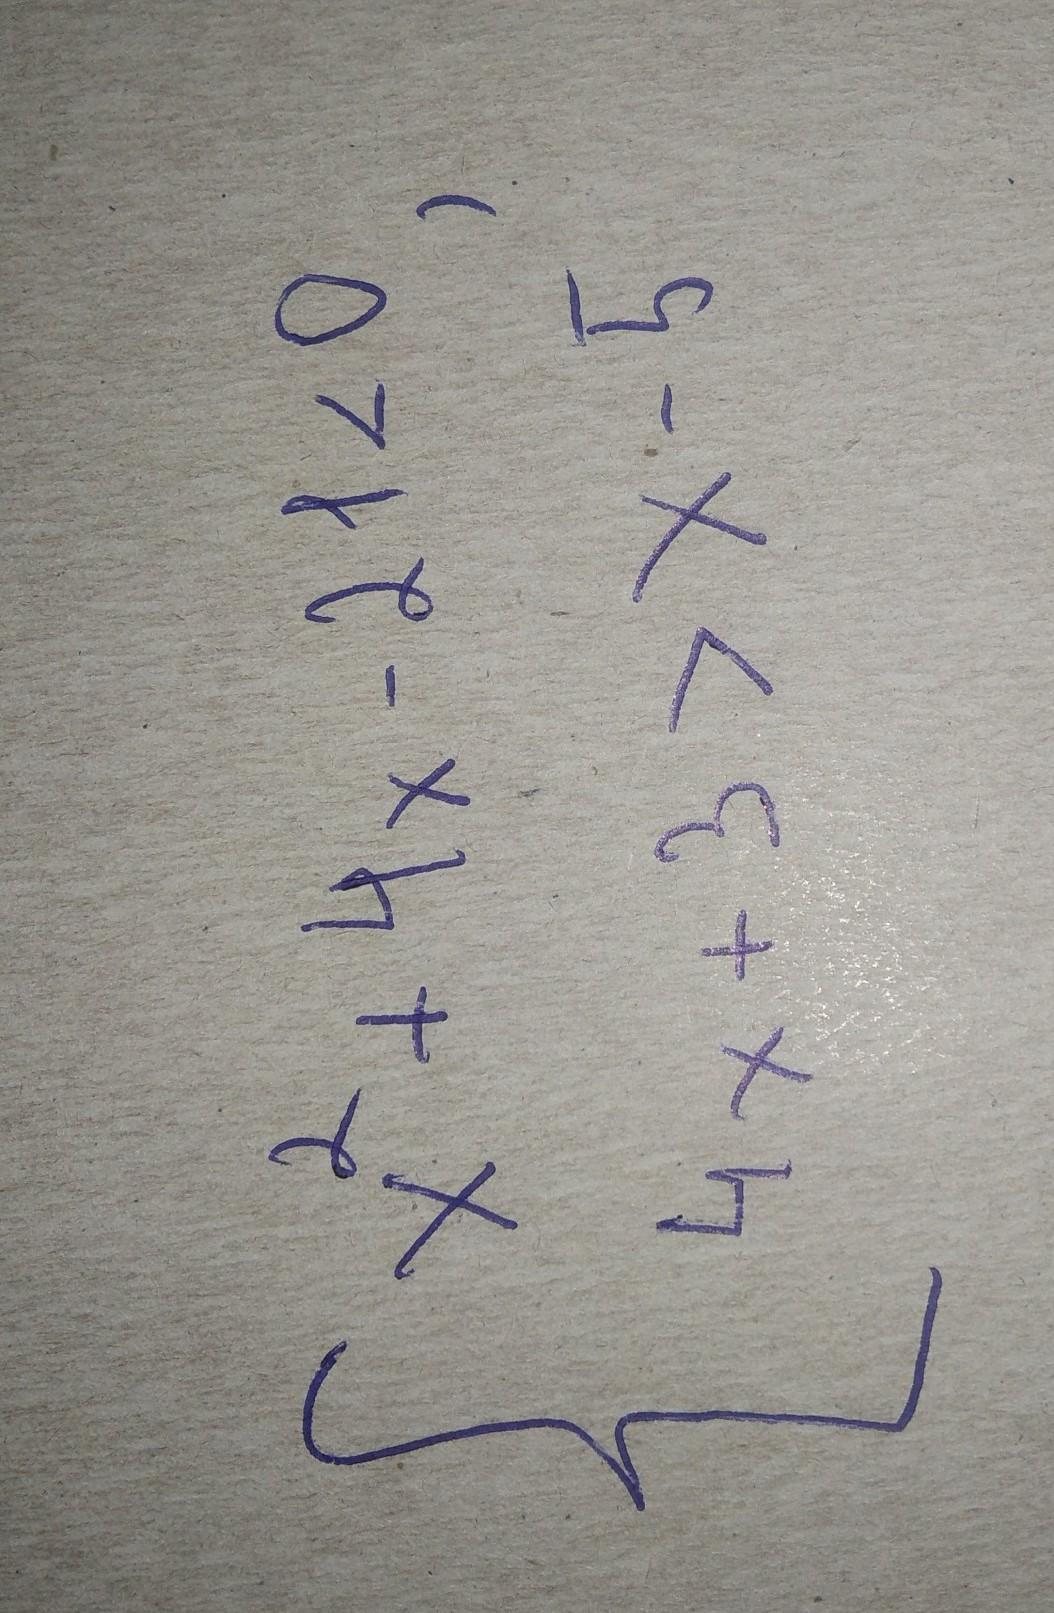 x² + 4x - 21 < 0,
4x + 3 > x - 5